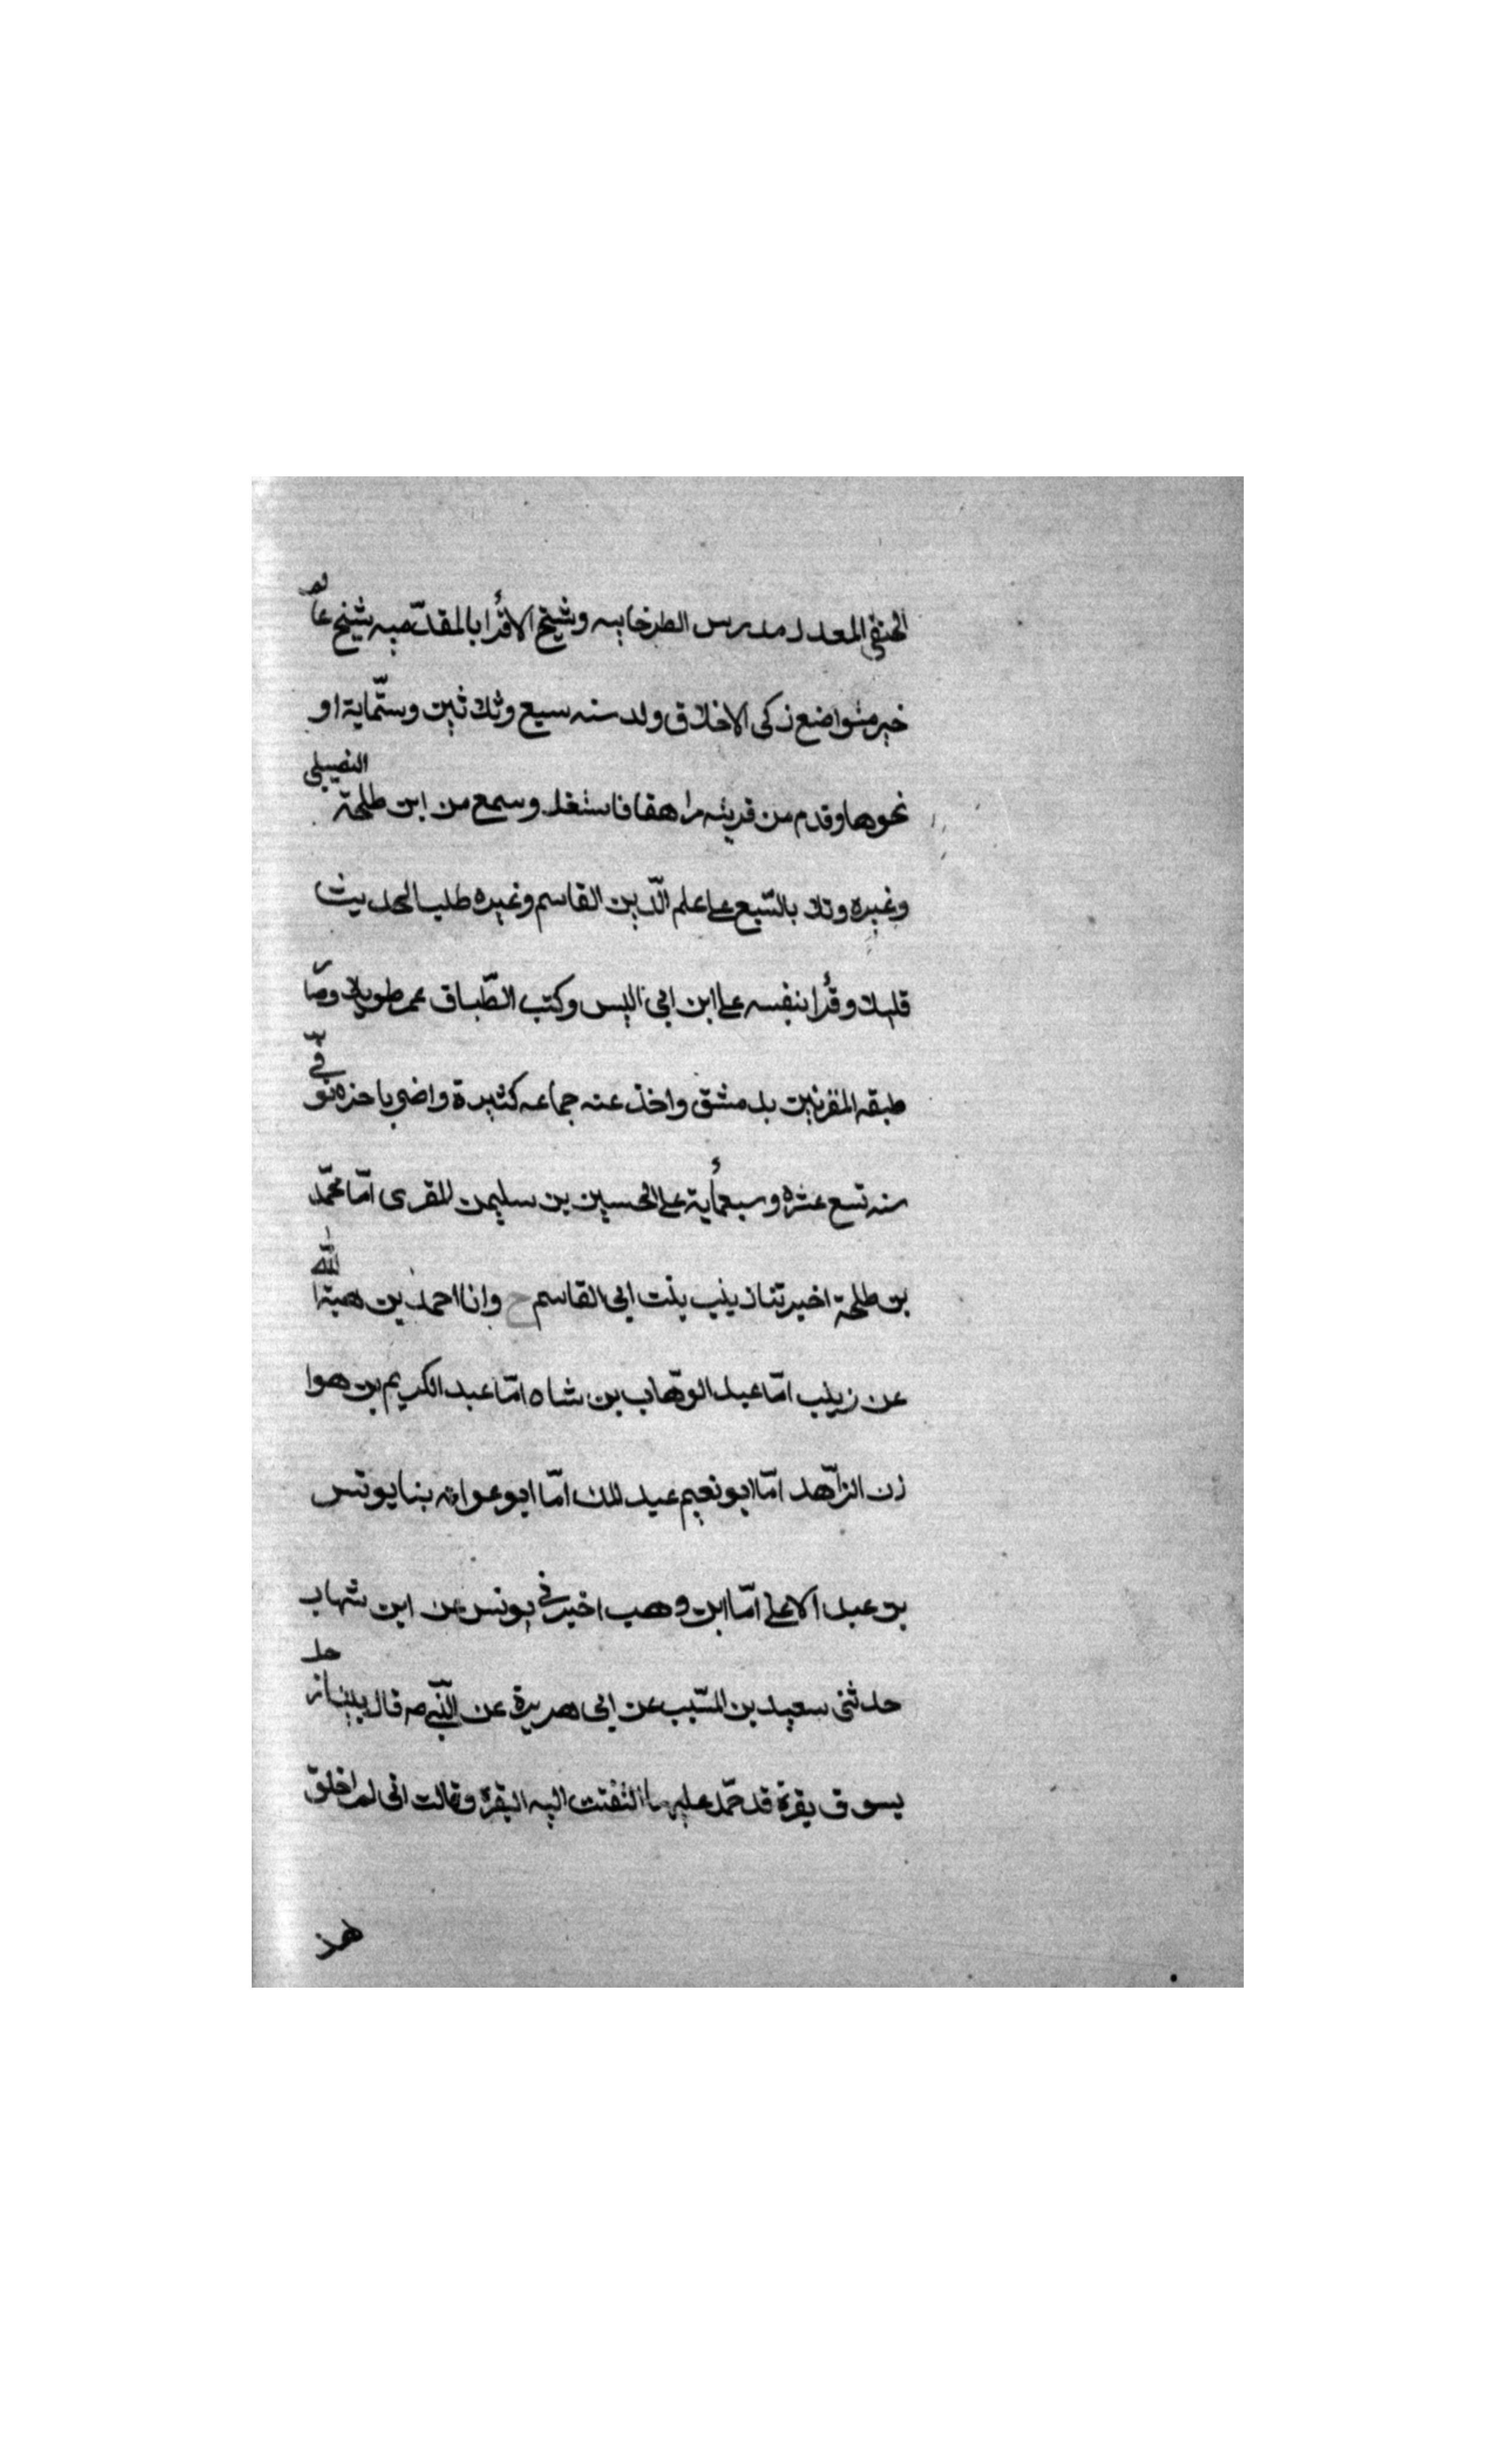 الحنفي المعدل مدرس الطرخانيه وشيخ الاقرا بالمقدّميه شيخ عالم
خير متواضع زكى الاخلاق ولد سنه سبع وثلاثين وستّماية او
نحوها وقدم من قريته مراهقا فاشتغل وسمع من ابن طلحة النصيبى
وغيره وتلا بالسّبع على علم الدّين القاسم وغيره طلب الحديث
قليلا وقرأ بنفسه على ابن ابى اليسر وكتب الطّباق عمر طويلا وصار
طبقه المقرئين بدمشق واخذ عنه جماعه كثيرة واضر باخره توفّى
سنه تسع عشره وسبعمأية على الحسين بن سليمن المقرى امّا محمّد
بن طلحة اخبرتنا زينب بنت ابى القاسم ح وانا احمد بن هبة الله
عن زينب امّا عبد الوهّاب بن شاه امّا عبد الكريم بن هوا
زن الزّاهد امّا ابو نعيم عبد الملك امّا ابو عوانه بنا يونس
بن عبد الاعلى امّا ابن وهب اخبرنى يونس عن ابن شهاب
حدثنى سعيد بن المسّيب عن ابى هريرة عن النّبى صه قال بينا رجل
يسوق بقرة قد حمّد عليها التفتت اليه البقرة وقالت انى لم اخلق
هذ